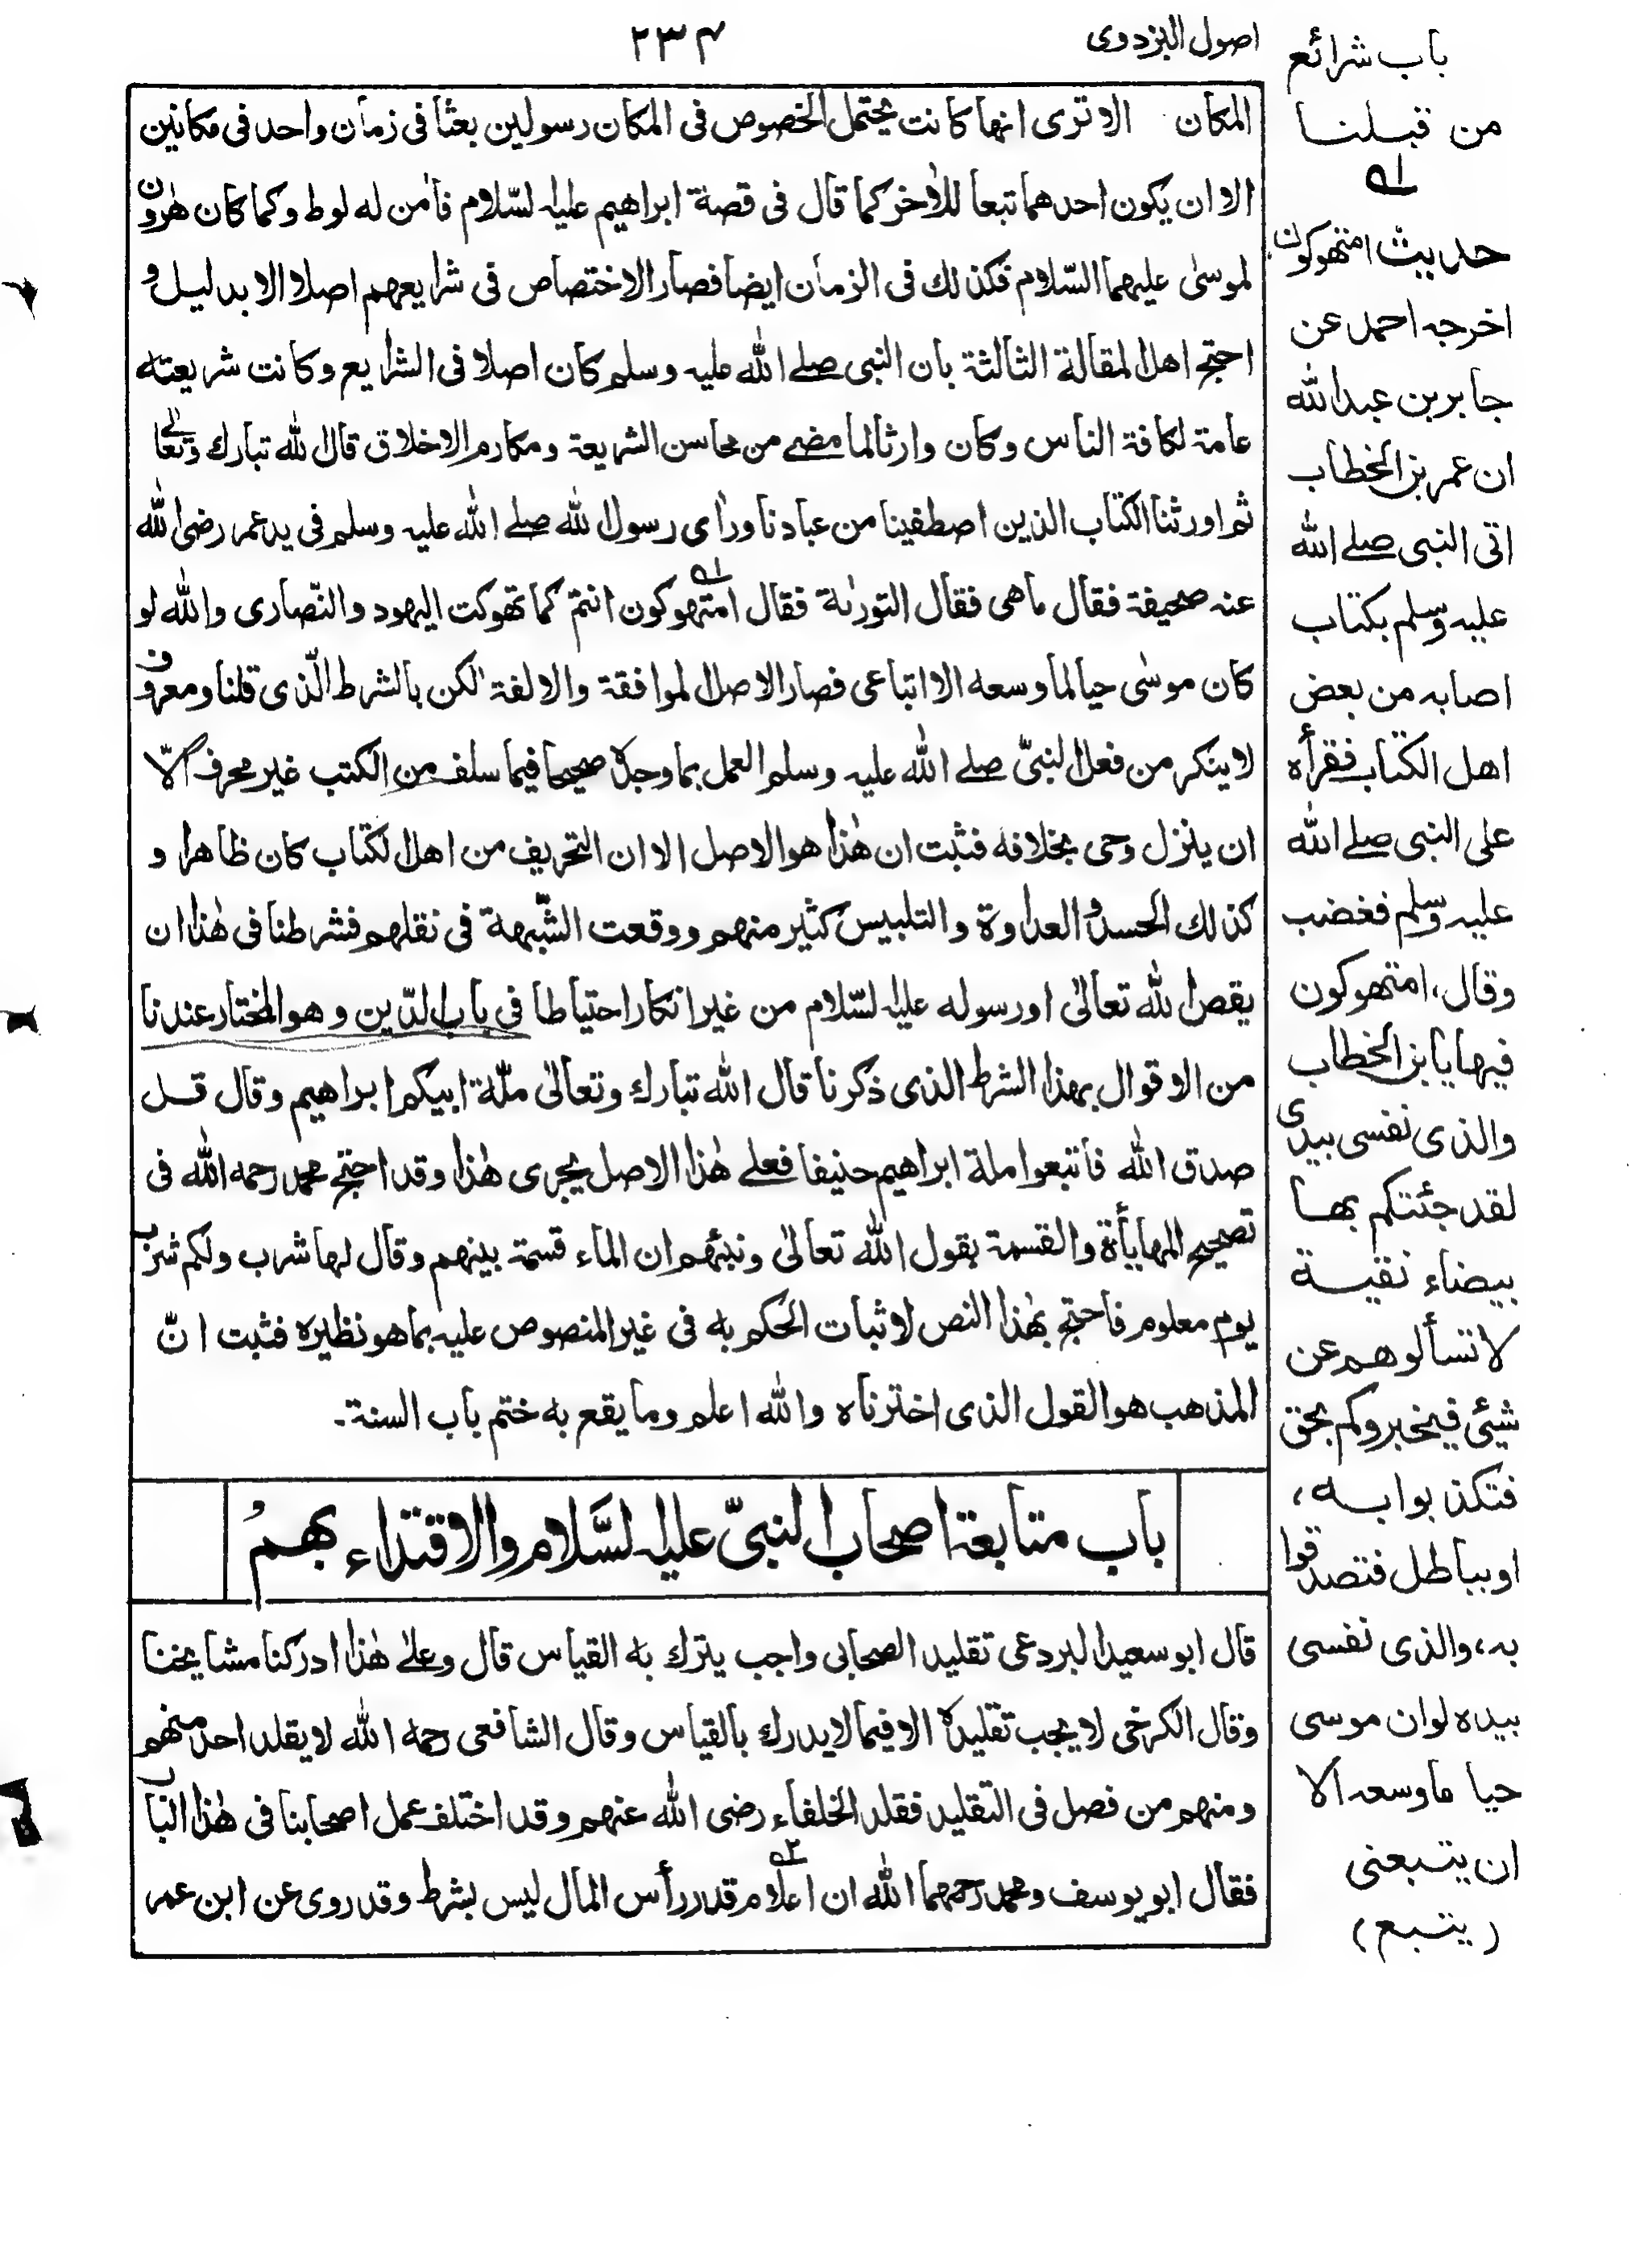 اصول البزدوى
٢٣٤
باب شرائع
من قبلنا
المكان الا ترى انها كانت يحتمل الخصوص فى المكان رسولين بعثا فى زمان واحد فى مكانين
الا ان يكون احدهما تبعا للاٰخر كما قال فى قصة ابراهيم عليه السّلام فاٰمن له لوط وكما كان هٰرون
لموسٰى عليهما السّلام فكذلك فى الزمان ايضا فصار الاختصاص فى شرايعهم اصلا الا بدليل و
احتج اهل المقالة الثالثة بان النبى صلے الله عليه وسلم كان اصلا فى الشرايع وكانت شريعته
عامة لكافة الناس وكان وارثا لما مضے من محاسن الشريعة ومكارم الاخلاق قال الله تبارك وتعالٰى
ثم اورثنا الكتاب الذين اصطفينا من عبادنا وراٰى رسول الله صلے الله عليه وسلم فى يد عمر رضى الله
عنه صحيفة فقال ما هى فقال التورٰىة فقال امتهوكون انتم كما تهوكت اليهود والنّصارى والله لو
كان موسٰى حيا لما وسعه الا اتباعى فصار الاصل الموافقة والالفة لٰكن بالشرط الّذى قلنا ومعروف
لا ينكر من فعل النبىّ صلے الله عليه وسلم العمل بما وجدہ صحيحا فيما سلف من الكتب غير محرف الّا
ان ينزل وحى بخلافه فثبت ان هٰذا هو الاصل الا ان التحريف من اهل الكتاب كان ظاهرا و
كذلك الحسد والعداوة والتلبيس كثير منهم ووقعت الشّبهة فى نقلهم فشرطنا فى هٰذا ان
يقص الله تعالٰى او رسوله عليه السّلام من غير انكار احتياطا فى باب الدّين وهو المختار عندنا
من الاقوال بهذا الشرط الذى ذكرنا قال الله تبارك وتعالٰى ملّة ابيكم ابراهيم وقال قل
صدق الله فاتبعوا ملة ابراهيم حنيفا فعلے هٰذا الاصل يجرى هٰذا وقد احتج محمد رحمه الله فى
تصحيح المهايأة والقسمة بقول الله تعالٰى ونبئهم ان الماء قسمة بينهم وقال لها شرب ولكم شرب
يوم معلوم فاحتج بهٰذا النص لاثبات الحكم به فى غير المنصوص عليه بما هو نظيره فثبت انّ
المذهب هو القول الذى اخترناه والله اعلم وما يقع به ختم باب السنة۔
باب متابعة اصحاب النبىّ عليه السَّلام والاقتداء بهم
قال ابو سعيد البردعى تقليد الصحابى واجب يترك به القياس قال وعلٰے هٰذا ادركنا مشايخنا
وقال الكرخى لا يجب تقليدہ الا فيما لا يدرك بالقياس وقال الشافعى رحمه الله لا يقلد احد منهم
ومنهم من فصل فى التقليد فقلد الخلفاء رضى الله عنهم وقد اختلف عمل اصحابنا فى هٰذا الباب
فقال ابو يوسف ومحمد رحمهما الله ان اعلام ٢ـه قدر رأس المال ليس بشرط وقد روى عن ابن عمر
١ـه
حديث امتهوكون
اخرجه احمد عن
جابر بن عبدالله
ان عمر بن الخطاب
اتى النبى صلے الله
عليه وسلم بكتاب
اصابه من بعض
اهل الكتاب فقرأہ
على النبى صلے الله
عليه وسلم فغضب
وقال، امتهوكون
فيها يا بن الخطاب
والذى نفسى بيدى
لقد جئتكم بها
بيضاء نقية
لا تسألوهم عن
شيئى فيخبروكم بحق
فتكذبوا به،
او بباطل فتصدقوا
به، والذى نفسى
بيده لو ان موسى
حيا ما وسعه الا
ان يتبعنى
(يتبع)